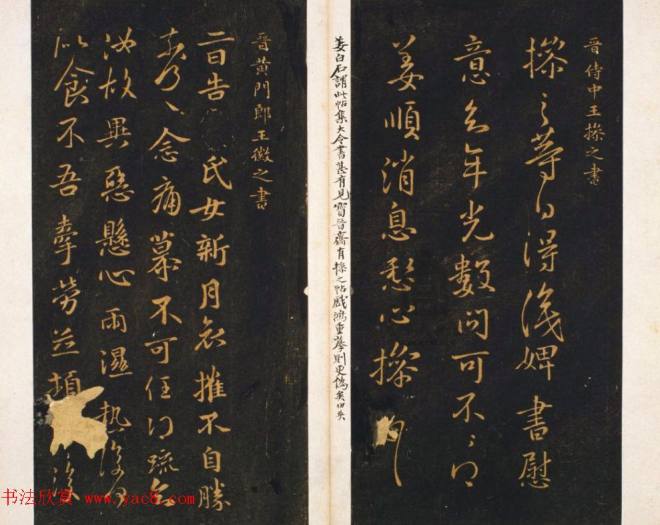 晋侍中王操之書
操之等白得識婢書慰
意去年光數問可不〻得
姜順消息愁心操
姜白石謂此帖集大令書甚有見寶晉齋有操之帖戲鴻重摹則更偽矣
晉黃門郎王徽之書
二日告 氏女新月哀摧不自勝
奈〻念痛慕不可任得疏知
汝故異惡懸心雨濕熱復
以食不吾牽勞並頓
书法欣赏 www.yac8.com